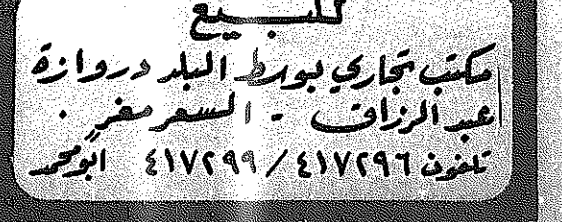 للبيع
مكتب تجاري بوسط البلد دروازة
عبد الرزاق - السعر مغر .
تلفون ٤١٧٢٩٦ / ٤١٧٢٩٩ ابو محمد